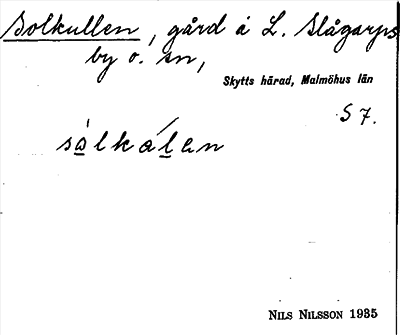 Solkullen, gård å L. Slågarps
by o. sn,
Skytts härad, Malmöhus län
S 7.
sòlkálen
NILS NILSSON 1935